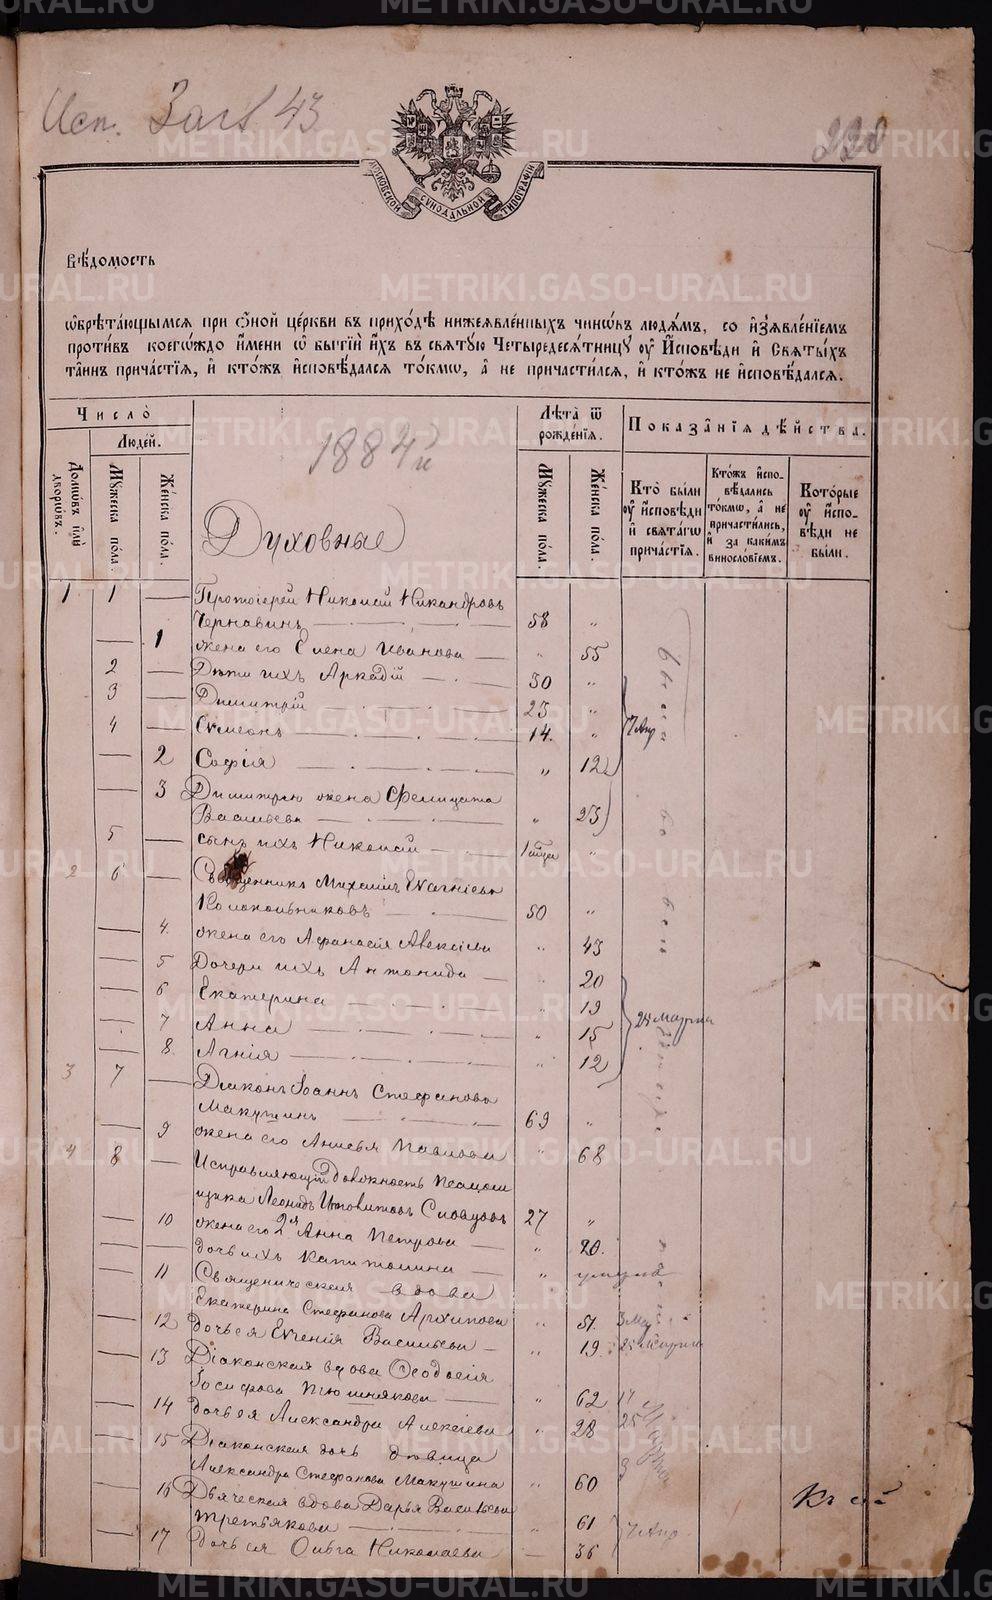 Исп.
43
220
МОСКОВСКОЙ СУНОДАЛЬНОЙ ТИПОГРАФІИ
Вѣ́домость
ѡ҆брѣта́ющымсѧ при ѻ҆́ной це́ркви въ прихо́дѣ нижеꙗвле́нныхъ чинѡ́въ лю́демъ, со и҆з̾ѧвле́нїемъ
проти́въ коегѡ́ждо и҆́мени ѡ҆ бытїѝ и҆́хъ въ свѧту́ю Четыредесѧ́тницꙋ оу҆ И҆́сповѣди и҆ Свѧты́хъ
та́инъ прича́стїѧ, и҆ кто́жъ и҆сповѣ́далсѧ то́кмѡ, а҆ не причасти́лсѧ, и҆ кто́жъ не и҆сповѣ́далсѧ.
Число̀
Люде́й.
Домѡ́въ и҆лѝ дворѡ́въ.
Мꙋ́жеска по́ла.
Же́нска по́ла.
1884 г
Духовные
Лѣ́та ѿ рожде́нїѧ.
Мꙋ́жеска по́ла.
Же́нска по́ла.
Показа̑нїѧ дѣ́йства.
Кто̀ бы́ли оу҆ и҆́сповѣди и҆ свѧта́гѡ прича́стїѧ.
Кто́жъ и҆сповѣ́дались то́кмѡ, а҆ не причасти́лись, и҆ за каки́мъ виносло́вїемъ.
Кото́рые оу҆ и҆́сповѣди не бы́ли.
1 1 — Протоіерей Николай Никандровъ
Чернавинъ — 58 „
— 1 жена его Елена Иванова — „ 55
2 — Дѣти ихъ Аркадій — 30 „
3 — Димитрій 23 „
4 — Симеонъ 14. „ 7 Апр
— 2 Софія — „ 12
— 3 Димитрія жена Фелицата
Васильева — „ 23
5 — сынъ ихъ Николай — „
2 6 — Священникъ Михаилъ
Колокольниковъ 50 „
— 4. жена его Афанасія Алексіева „ 43
— 5 Дочери ихъ Антонида — 20
— 6 Екатерина — „ 19
— 7 Анна — „ 15 25 марта
— 8. Агнія — „ 12
3 7 — Діаконъ Іоаннъ Стефановъ
Макушинъ 69 „
— 9 жена его Анисья Павлова „ 68
4 8 — Исправляющій должность псалом
щика Леонидъ Словцовъ 27 „
— 10 жена его 2я Анна Петрова — „ 20.
— дочь ихъ Капитолина — „ умерла
— 11 Священическая вдова
Екатерина Стефанова Архипова „ 51. 3
— 12 дочь ея Евгенія Васильева — „ 19 25 марта
— 13 Діаконская вдова Ѳеодосія
Іосифова — „ 62 17
— 14 дочь ея Александра Алексіева „ 28 25 Марта
— 15 Діаконская дочь дѣвица
Александра Стефанова Макушина „ 60 3
— 16 Дьяческая вдова Дарья Васильева
Третьякова — „ 61 7 Апр
— 17 дочь ея Ольга Николаева — 36
Къ сей
METRIKI.GASO-URAL.RU